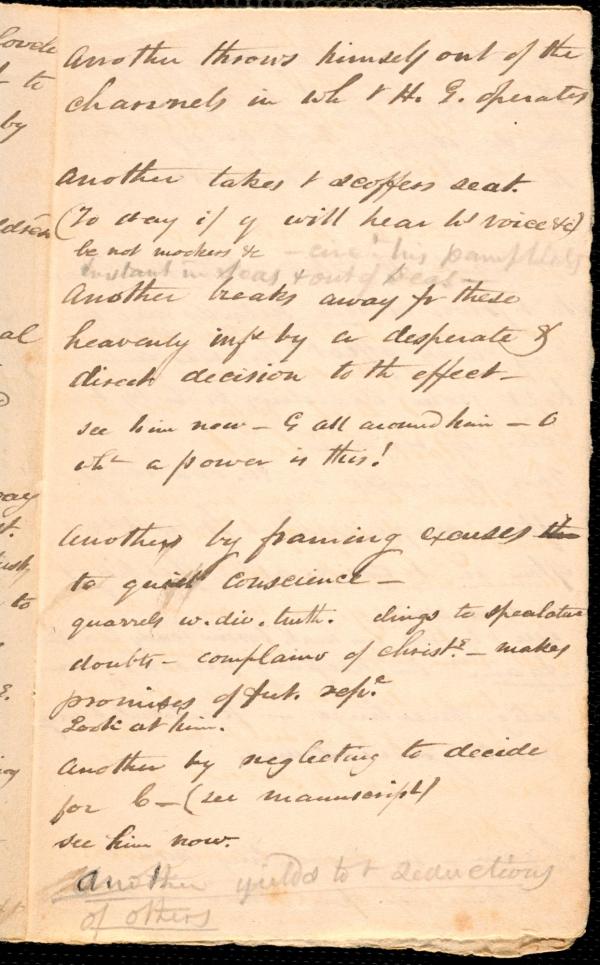 lovele
to
by
al
Another throws himself out of the
channels in wh t H. G. operates
Another takes t scoffers seat.
(To day if y will hear his voice &c)
be not mockers &c – his pamphlets
instant in seas & out of seas –
Another breaks away fr these
heavenly infs by a desperate &
direct decision to th effect –
see him now – G all around him – O
wht a power is this!
Another by framing excuses
to quiet conscience –
quarrels w. div. truth. clings to speculative
doubts – complains of Christs – makes
promises of fut. repe
Look at him.
Another by neglecting to decide
for C – (see manuscript)
see him now.
Another yields to t seductions
of others